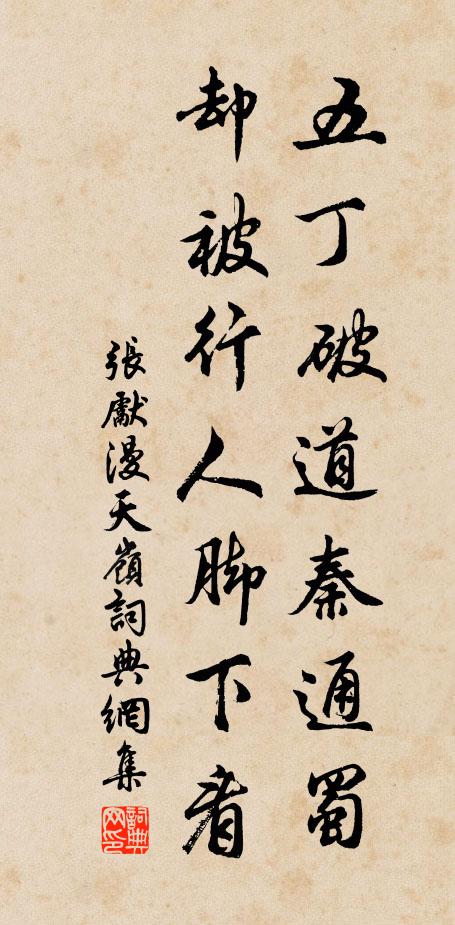 五丁破道秦通蜀
却被行人脚下看
張獻漫天嶺詞典網集
詞典网印